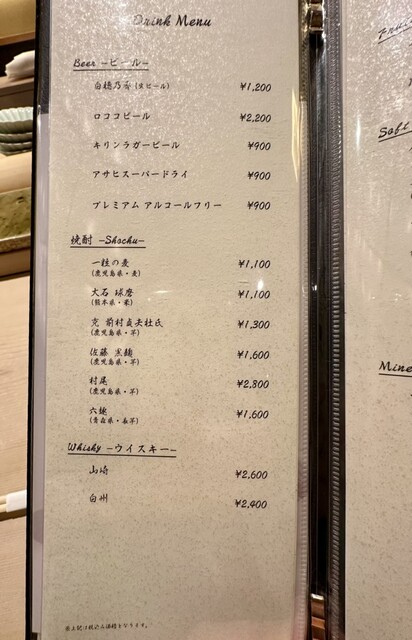 Drink Menu
Beer －ビール－
白穂乃香 (生ビール) ¥1,200
ロココビール ¥2,200
キリンラガービール ¥900
アサヒスーパードライ ¥900
プレミアム アルコールフリー ¥900
焼酎 －Shochu－
一粒の麦 ¥1,100
(鹿児島県・麦)
大石 球磨 ¥1,100
(熊本県・米)
前村貞夫杜氏 ¥1,300
(鹿児島県・芋)
佐藤 黒麹 ¥1,600
(鹿児島県・芋)
村尾 ¥2,800
(鹿児島県・芋)
六趣 ¥1,600
(青森県・長芋)
Whisky －ウイスキー－
山崎 ¥2,600
白州 ¥2,400
※上記は税込み価格となります。
Soft
Mine